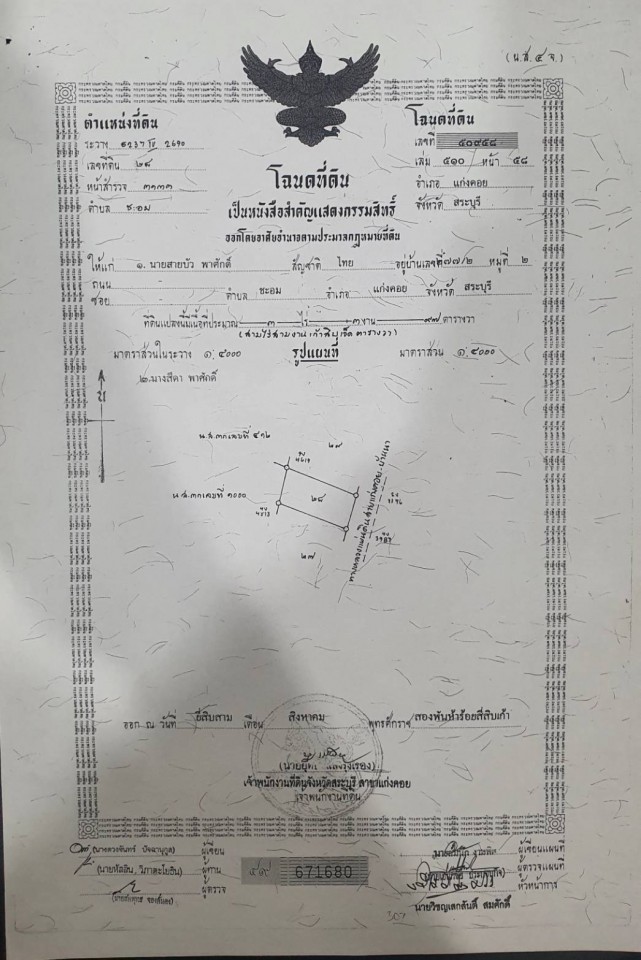 (น.ส.๔ จ.)
ตำแหน่งที่ดิน
ระวาง ๕๒๓๗ IV ๖๔๑๐
เลขที่ดิน ๒๘
หน้าสำรวจ ๓๑๓๓
ตำบล ชะอม
โฉนดที่ดิน
เลขที่ ๕๐๙๕๘
เล่ม ๕๑๐ หน้า ๕๘
อำเภอ แก่งคอย
จังหวัด สระบุรี
โฉนดที่ดิน
เป็นหนังสือสำคัญแสดงกรรมสิทธิ์
ออกโดยอาศัยอำนาจตามประมวลกฎหมายที่ดิน
ให้แก่ ๑. นายสายบัว พาศักดิ์ สัญชาติ ไทย อยู่บ้านเลขที่ ๗๗/๒ หมู่ที่ ๒
ถนน
ซอย ตำบล ชะอม อำเภอ แก่งคอย จังหวัด สระบุรี
ที่ดินแปลงนี้มีเนื้อที่ประมาณ ๓ ไร่ ๓ งาน ๙๗ ตารางวา
(สามไร่สามงานเก้าสิบเจ็ดตารางวา)
มาตราส่วนในระวาง ๑:๔๐๐๐ รูปแผนที่ มาตราส่วน ๑:๔๐๐๐
๒.นางสีดา พาศักดิ์
น
น.ส.๓ก เลขที่ ๕๑๒
๒๙
น.ส.๓ก เลขที่ ๑๐๐๐
๒๘
๒๗
ทางหลวงแผ่นดิน สายแก่งคอย-บ้านนา
ออก ณ วันที่ ยี่สิบสาม เดือน สิงหาคม พุทธศักราช สองพันห้าร้อยสี่สิบเก้า
เจ้าพนักงานที่ดินจังหวัดสระบุรี สาขาแก่งคอย
เจ้าพนักงานที่ดิน
ผู้เขียน
ผู้ทาน
ผู้ตรวจ
๕๙ 671680
ผู้เขียนแผนที่
ผู้ตรวจแผนที่
หัวหน้าการ
307